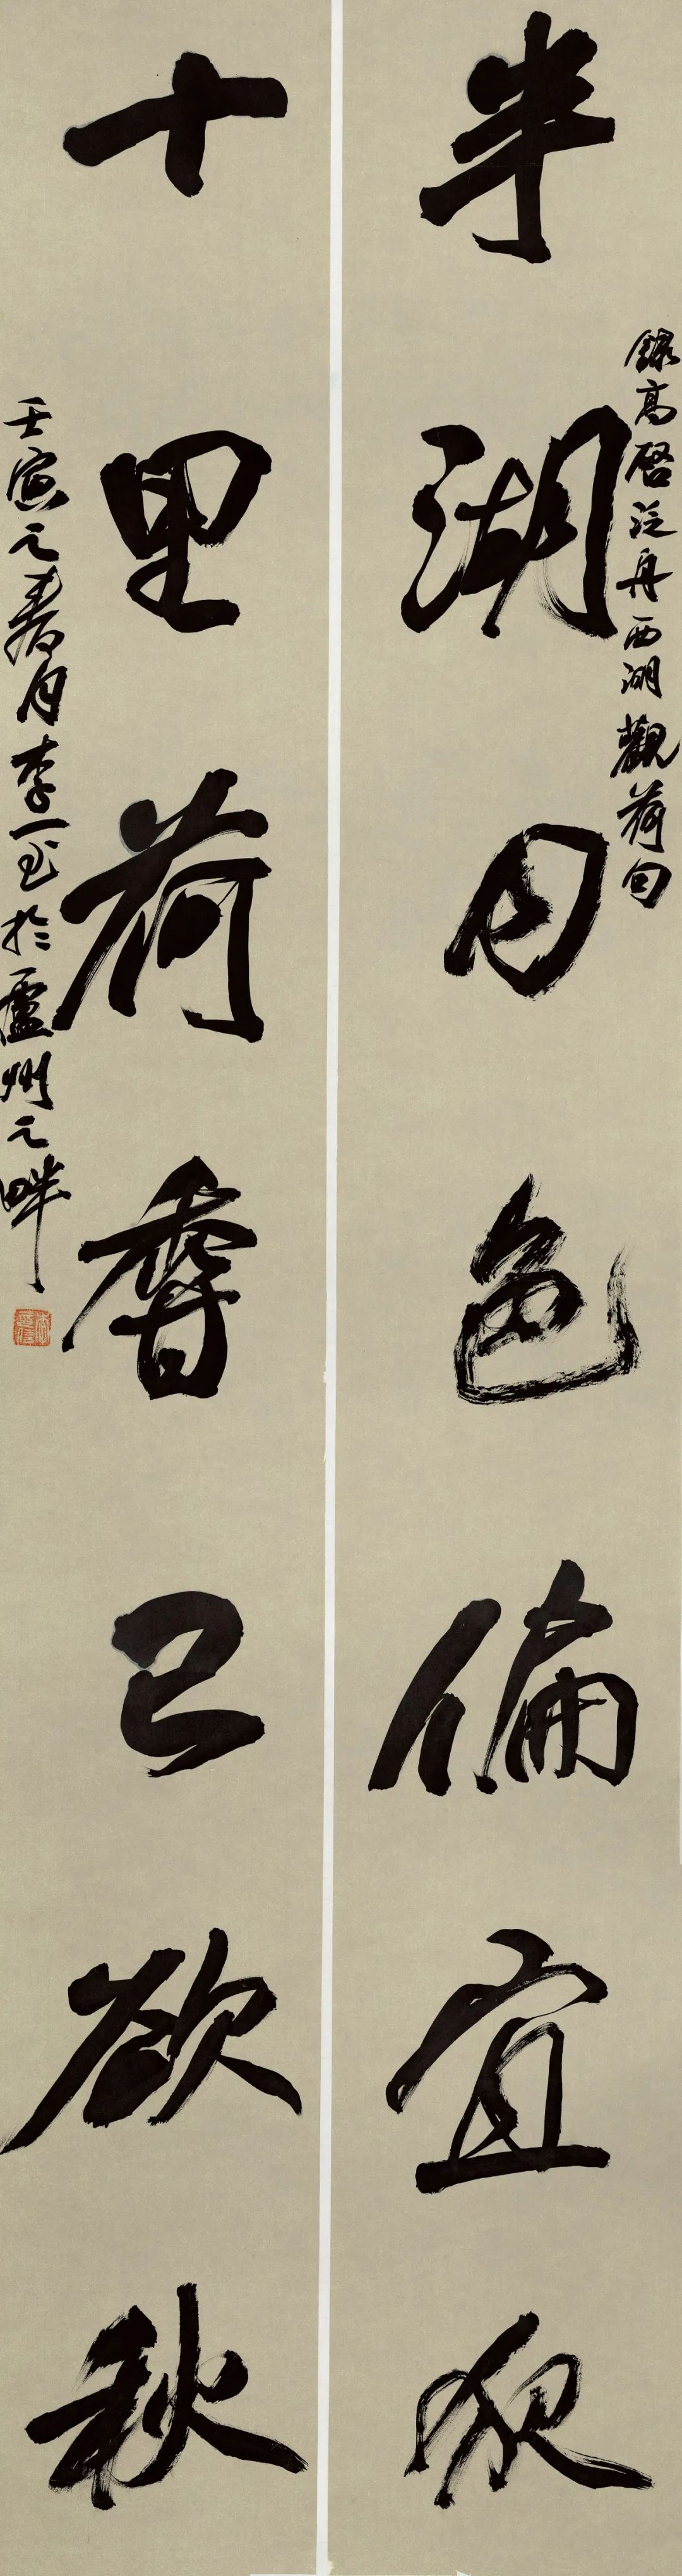 錄高啓泛舟西湖觀荷句
半湖月色偏宜夜
十里荷香已欲秋
壬寅之春月李一
於廬州之畔